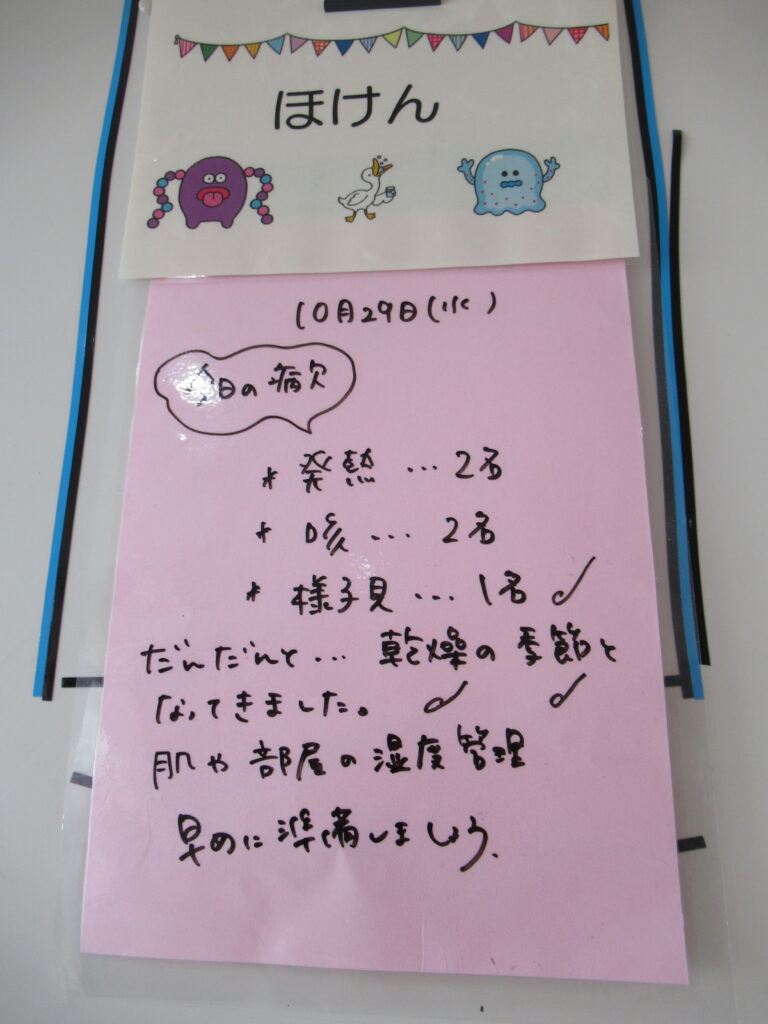 ほけん
10月29日(水)
今日の病欠
* 発熱 … 2名
* 咳 … 2名
* 様子見 … 1名
だんだんと… 乾燥の季節と
なってきました。
肌や部屋の湿度管理
早めに準備しましょう。